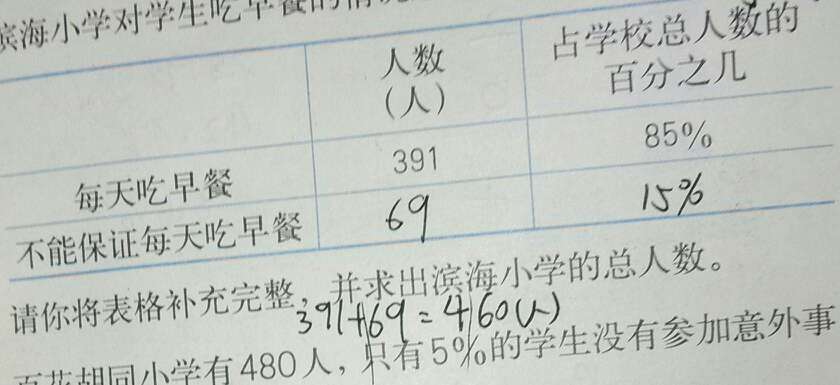 滨海小学对学生吃早餐的情况
人数
(人)
占学校总人数的
百分之几
每天吃早餐 391 85%
不能保证每天吃早餐 69 15%
请你将表格补充完整，并求出滨海小学的总人数。
391+69=460(人)
百花胡同小学有480人，只有5%的学生没有参加意外事